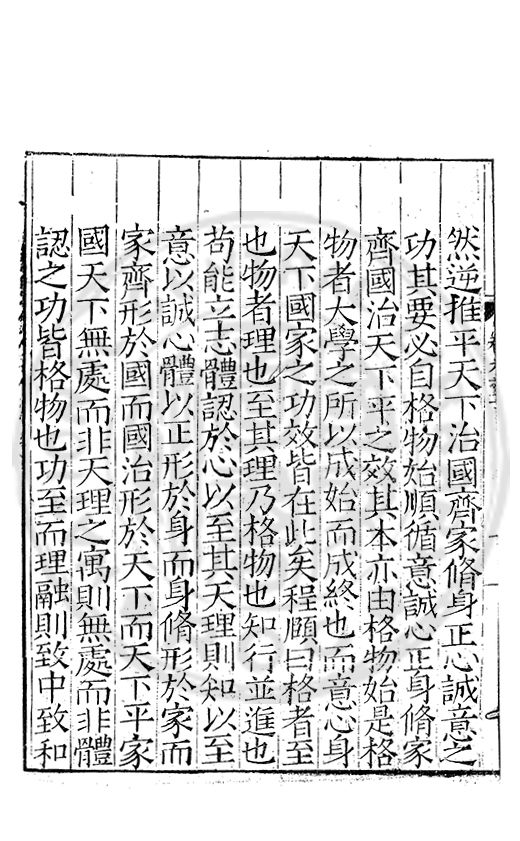 然逆推平天下治國齊家脩身正心誠意之
功其要必自格物始順循意誠心正身脩家
齊國治天下平之效其本亦由格物始是格
物者大學之所以成始而成終也而意心身
天下國家之功效皆在此矣程頤曰格者至
也物者理也至其理乃格物也知行並進也
苟能立志體認於心以至其天理則知以至
意以誠心體以正形於身而身脩形於家而
家齊形於國而國治形於天下而天下平家
國天下無處而非天理之寓則無處而非體
認之功皆格物也功至而理融則致中致和